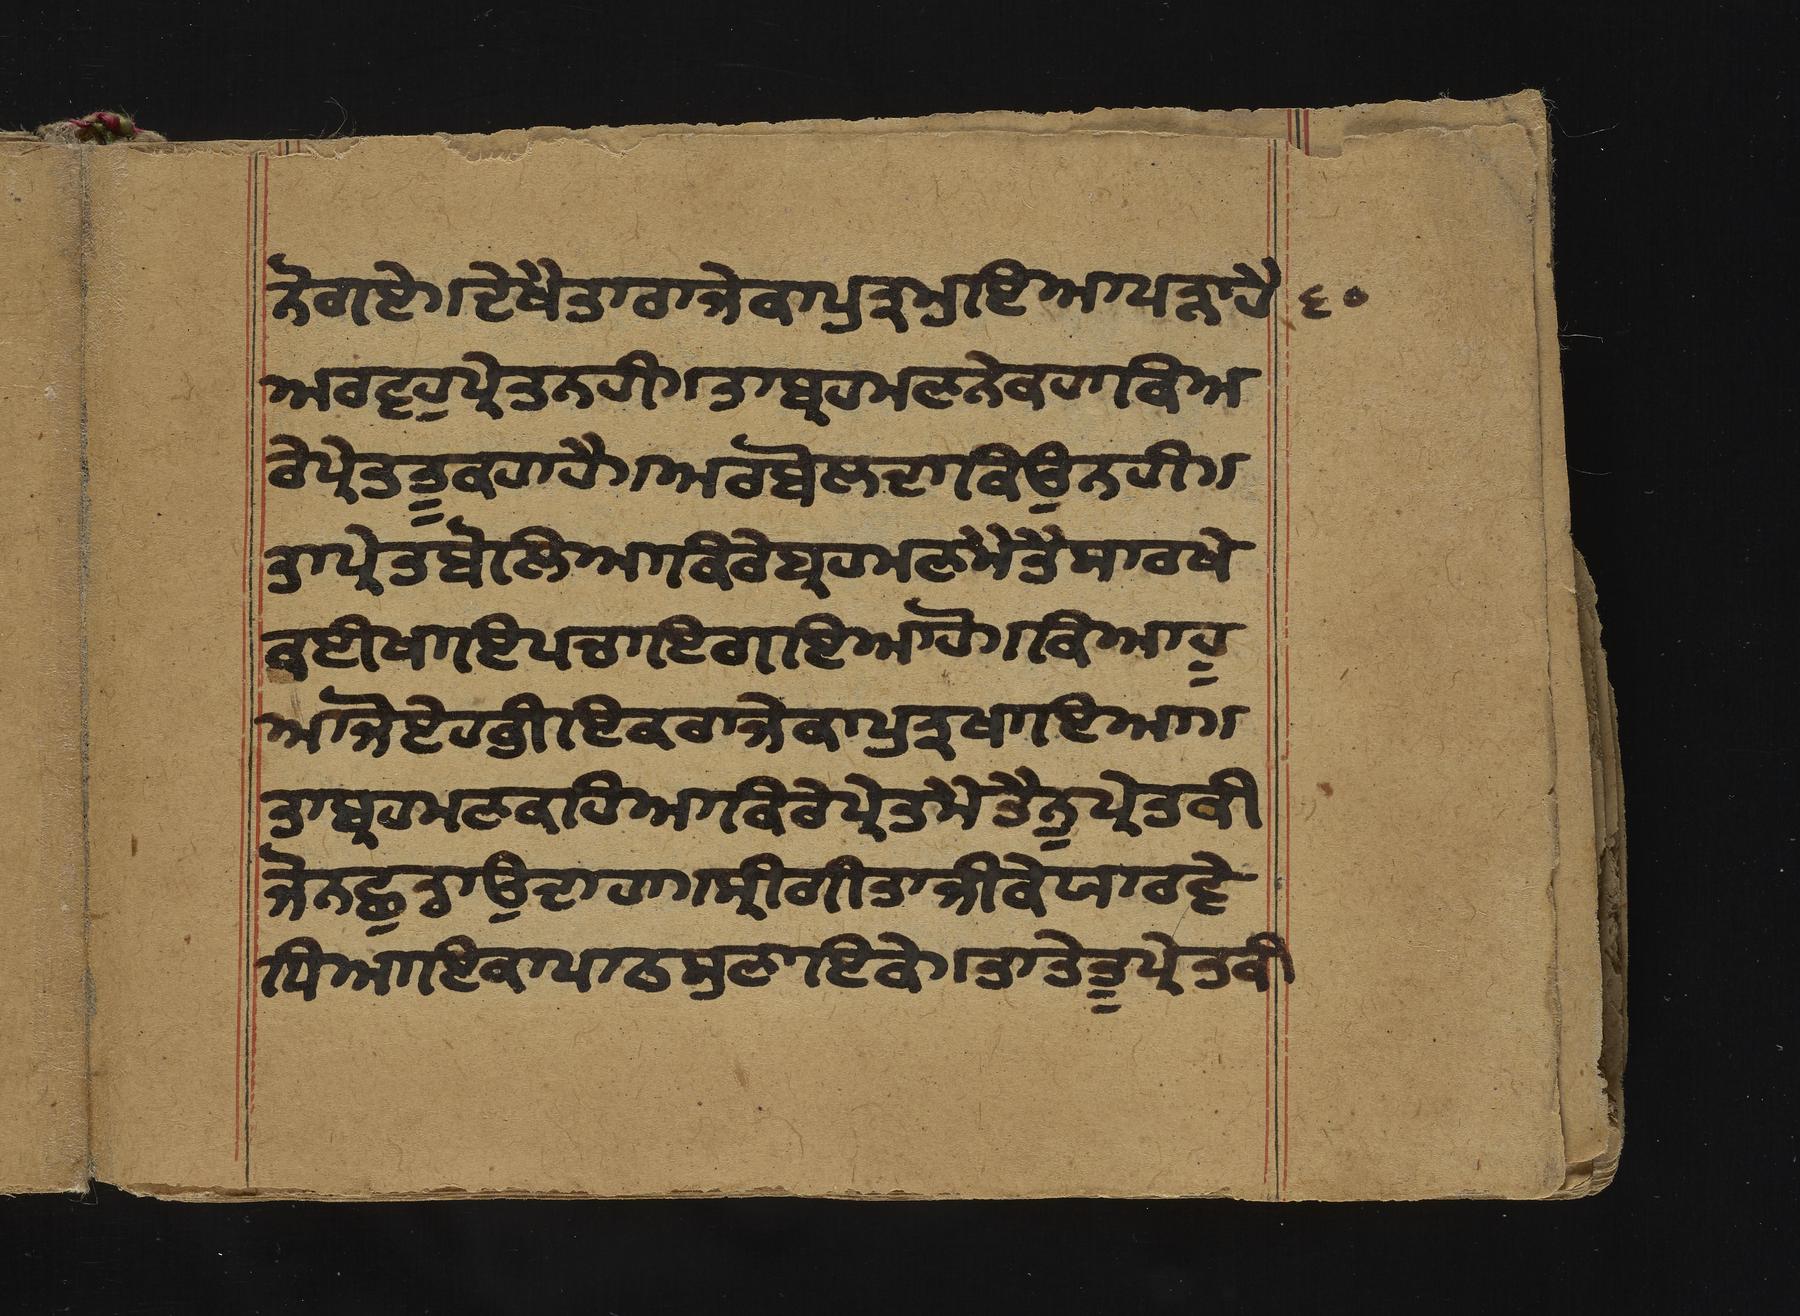 ਨੋਗਏ।ਦੇਖੈਤਾਰਾਜੇਕਾਪੁਤ੍ਰਮੁਇਆਪੜਾਹੈ ੬੦
ਅਰਵਹੁਪ੍ਰੇਤਨਹੀ।ਤਾਬ੍ਰਹਮਣਨੇਕਹਾਕਿਅ
ਰੇਪ੍ਰੇਤਤੂਕਹਾਹੈ।ਅਰਬੋਲਦਾਕਿਉਨਹੀ।
ਤਾਪ੍ਰੇਤਬੋਲਿਆਕਿਰੇਬ੍ਰਹਮਣਮੈਤੈਸਾਰਖੇ
ਕਈਖਾਇਪਚਾਇਗਇਆਹੋ।ਕਿਆਹੂ
ਆਜੋਏਹਭੀਇਕਰਾਜੇਕਾਪੁਤ੍ਰਖਾਇਆ।
ਤਾਬ੍ਰਹਮਣਕਹਿਆਕਿਰੇਪ੍ਰੇਤਮੈਤੈਨੁਪ੍ਰੇਤਕੀ
ਜੋਨਛੁੜਾਉਦਾਹਾ।ਸ੍ਰੀਗੀਤਾਜੀਕੇਯਾਰਵੇ
ਧਿਆਇਕਾਪਾਠਸੁਣਾਇਕੇ।ਤਾਤੇਤੂਪ੍ਰੇਤਕੀ